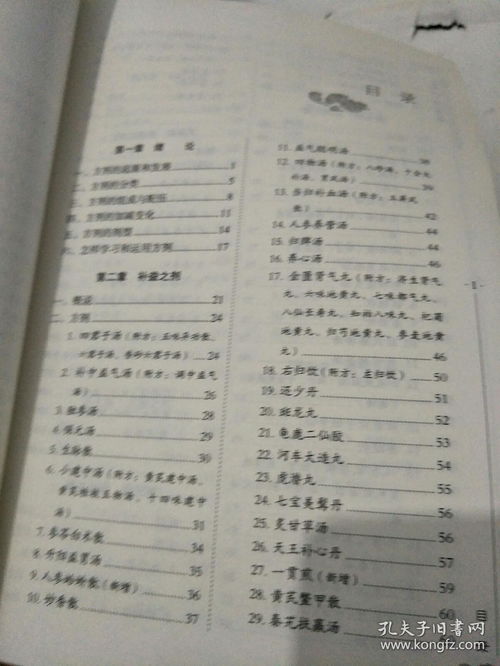 目录
第一章 绪论
一、方剂的起源和发展 1
二、方剂的分类 5
三、方剂的组成与配伍 8
四、方剂的加减变化 11
五、方剂的剂型 14
六、怎样学习和运用方剂 17
第二章 补益之剂
一、概论 21
二、方剂 24
1. 四君子汤（附方：五味异功散、
六君子汤、香砂六君子汤） 24
2. 补中益气汤（附方：调中益气
汤） 26
3. 独参汤 28
4. 保元汤 29
5. 生脉散 30
6. 小建中汤（附方：黄芪建中汤、
黄芪桂枝五物汤、十四味建中
汤） 31
7. 参苓白术散 34
8. 升阳益胃汤 35
9. 人参蛤蚧散（新增） 36
10. 妙香散 37
11. 益气聪明汤 38
12. 四物汤（附方：八珍汤、十全大
补汤、胃风汤） 39
13. 当归补血汤（附方：玉屏风
散） 42
14. 人参养营汤 44
15. 归脾汤 44
16. 养心汤 46
17. 金匮肾气丸（附方：济生肾气
丸、六味地黄丸、七味都气丸、
八仙长寿丸、知柏八味丸、杞菊
地黄丸、归芍地黄丸、参麦地黄
丸） 46
18. 右归饮（附方：左归饮） 50
19. 还少丹 51
20. 斑龙丸 52
21. 龟鹿二仙胶 53
22. 河车大造丸 54
23. 虎潜丸 55
24. 七宝美髯丹 56
25. 炙甘草汤 56
26. 天王补心丹 57
27. 一贯煎（新增） 59
28. 黄芪鳖甲散 60
29. 秦艽扶羸汤
1
目
孔夫子旧书网
www.kongfz.com